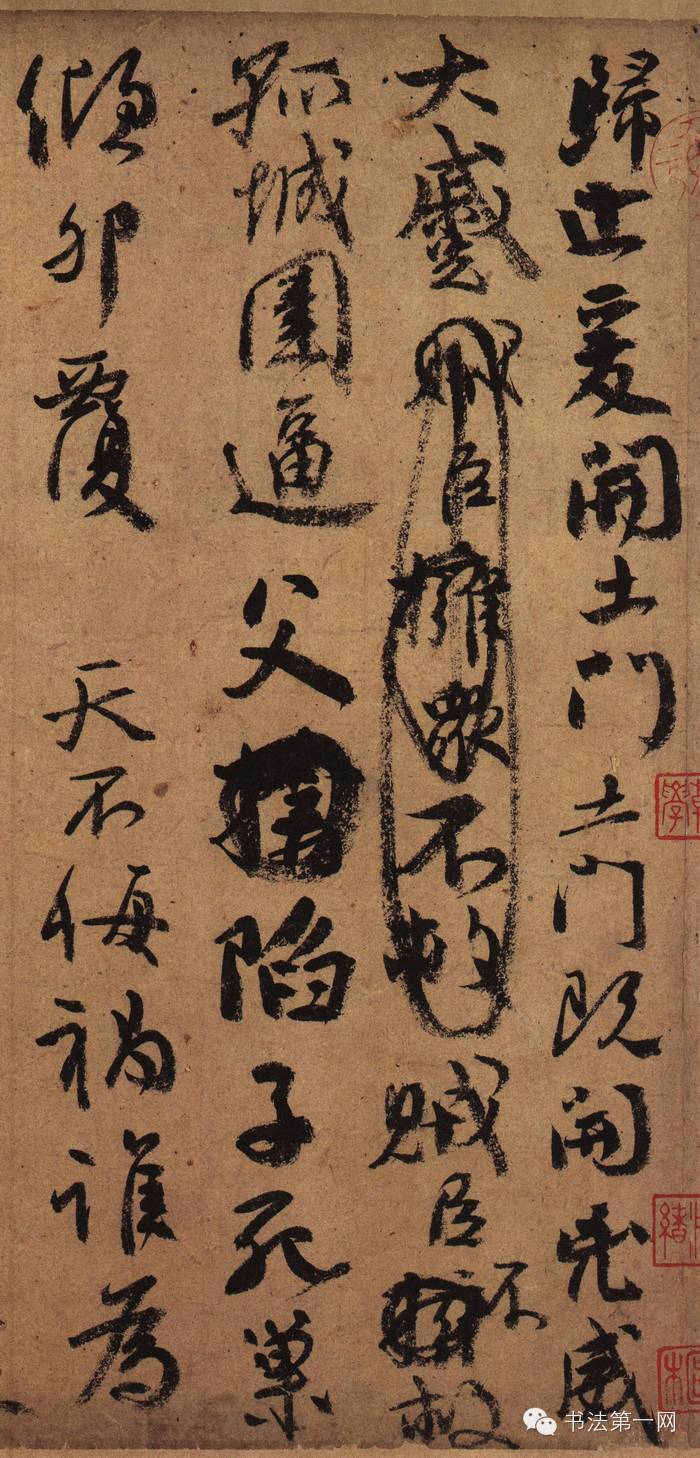 歸止爰開土門土門既開兇威
大蹙賊臣擁眾不救賊臣不救
孤城圍逼父陷子死巢
傾卵覆天不悔禍誰為
书法第一网